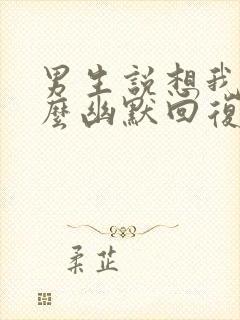 男生說想我
麼幽默回復
柔芷